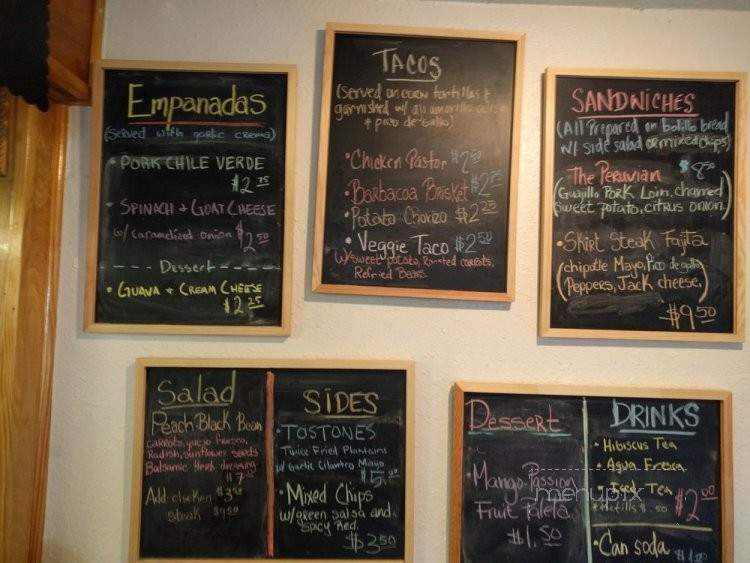 Empanadas
(Served with garlic crema)
• PORK CHILE VERDE
$2.75
• SPINACH & GOAT CHEESE
w/ caramelized onion $2.50
Dessert
• GUAVA & CREAM CHEESE
$2.25
TACOS
(Served on corn tortillas &
garnished w/ aji amarillo
& pico de gallo)
• Chicken Pastor $2.50
• Barbacoa Brisket $2.75
• Potato Chorizo $2.25
• Veggie Taco $2.50
w/ sweet potato, Roasted carrots,
Refried Beans.
SANDWICHES
(All Prepared on bolillo bread
w/ side salad or mixed chips)
• The Peruvian $8.50
(Guajillo Pork Loin, charred
sweet potato, citrus onion.)
• Skirt Steak Fajita
(chipotle Mayo, Pico de gallo,
Peppers, Jack cheese.)
$9.50
Salad
Peach Black Bean
carrots, queso fresco,
Radish, sunflower seeds
Balsamic Herb dressing
Add chicken $3.50
steak $4.50
SIDES
• TOSTONES
Twice Fried Plantains
w/ Garlic Cilantro Mayo
• Mixed Chips
w/ green salsa and
spicy Red.
$3.50
Dessert
• Mango Passion
Fruit Paleta
$1.50
DRINKS
• Hibiscus Tea
• Agua Fresca
• Iced Tea
$2.00
Refills $.50
• Can soda
menupix